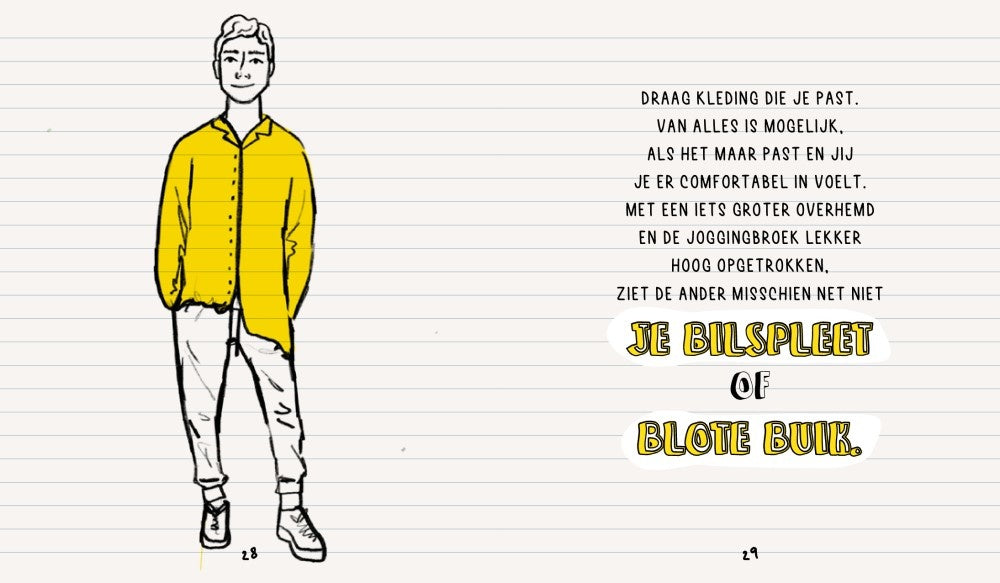 DRAAG KLEDING DIE JE PAST.
VAN ALLES IS MOGELIJK,
ALS HET MAAR PAST EN JIJ
JE ER COMFORTABEL IN VOELT.
MET EEN IETS GROTER OVERHEMD
EN DE JOGGINGBROEK LEKKER
HOOG OPGETROKKEN,
ZIET DE ANDER MISSCHIEN NET NIET
JE BILSPLEET
OF
BLOTE BUIK.
28
29